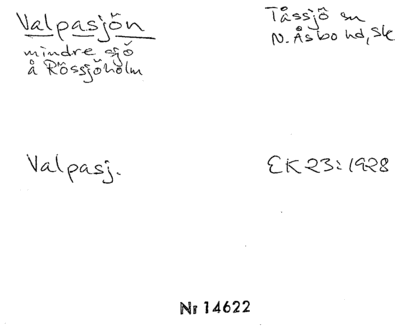 Valpasjön
mindre sjö
å Rössjöholm
Tåssjö sn
N. Åsbo hd, Sk
Valpasj.
EK 23: 1928
Nr 14622